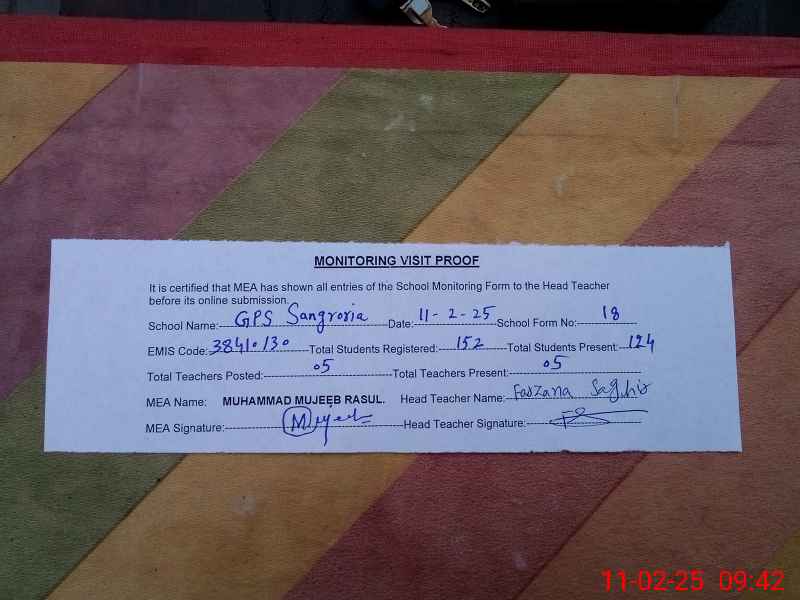 MONITORING VISIT PROOF
It is certified that MEA has shown all entries of the School Monitoring Form to the Head Teacher
before its online submission.
School Name: GPS Sangroria Date: 11-2-25 School Form No: 18
EMIS Code: 38410130 Total Students Registered: 152 Total Students Present: 124
Total Teachers Posted: 05 Total Teachers Present: 05
MEA Name: MUHAMMAD MUJEEB RASUL. Head Teacher Name: Farzana Saghir
MEA Signature: Mujeeb Head Teacher Signature:
11-02-25 09:42